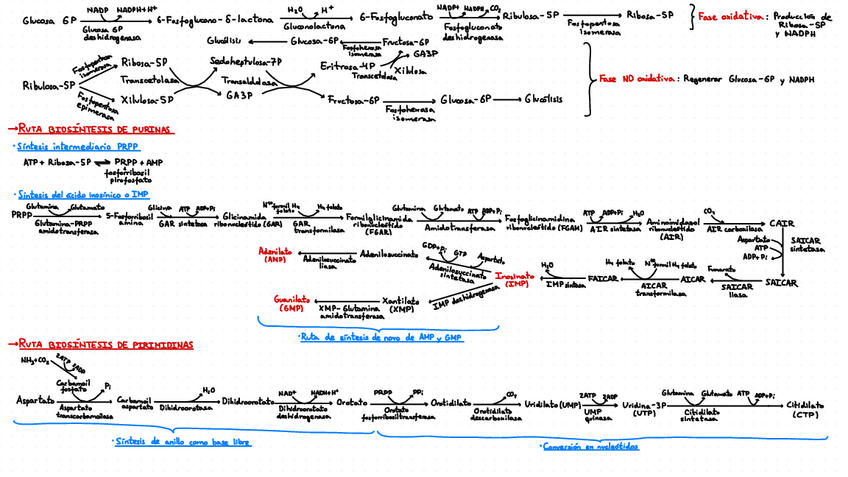 Glucosa 6P NADP NADPH+H+ Glucosa 6P deshidrogenasa 6-Fosfoglucono-δ-lactona H₂O H+ Gluconolactona 6-Fosfogluconato NADP+ NADPH CO₂ Fosfogluconato deshidrogenasa Ribulosa-5P Fosfopentosa isomerasa Ribosa-5P
Fase oxidativa: Producción de Ribosa-5P y NADPH
Glucólisis Glucosa-6P Fosfohexosa isomerasa Fructosa-6P
Ribulosa-5P Fosfopentosa isomerasa Ribosa-5P Transcetolasa Sedoheptulosa-7P Transaldolasa Eritrosa-4P Transcetolasa GA3P Xilulosa
Fosfopentosa epimerasa Xilulosa-5P GA3P Fructosa-6P Fosfohexosa isomerasa Glucosa-6P Glucólisis
Fase NO oxidativa: Regenerar Glucosa-6P y NADPH
→RUTA BIOSÍNTESIS DE PURINAS
·Síntesis intermediario PRPP
ATP + Ribosa-5P ⇌ PRPP + AMP
fosforribosil
pirofosfato
·Síntesis del ácido inosínico o IMP
PRPP Glutamina Glutamato Glutamina-PRPP amidotransferasa 5-Fosforribosil amina Glicina ATP ADP+Pi GAR sintetasa Glicinamida ribonucleótido (GAR) N¹⁰formil H₄ folato H₄ folato GAR transformilasa Formilglicinamida ribonucleótido (FGAR) Glutamina Glutamato ATP ADP+Pi Amidotransferasa Fosfoglicinamidina ribonucleótido (FGAM) ATP ADP+Pi H₂O AIR sintetasa Aminoimidazol ribonucleótido (AIR) CO₂ AIR carboxilasa CAIR
Aspartato ATP ADP+Pi SAICAR sintetasa
SAICAR Fumarato SAICAR liasa AICAR N¹⁰formil H₄ folato H₄ folato AICAR transformilasa FAICAR H₂O IMP sintasa Inosinato (IMP)
Aspartato GTP GDP+Pi Adenilosuccinato sintetasa Adenilosuccinato Adenilosuccinato liasa Adenilato (AMP)
IMP deshidrogenasa Xantilato (XMP) XMP-Glutamina amidotransferasa Guanilato (GMP)
·Ruta de síntesis de novo de AMP y GMP
→RUTA BIOSÍNTESIS DE PIRIMIDINAS
NH₃+CO₂ 2ATP 2ADP
Carbamoil fosfato Pi
Aspartato Aspartato transcarbamoilasa Carbamoil aspartato H₂O Dihidroorotasa Dihidroorotato NAD+ NADH+H+ Dihidroorotato deshidrogenasa Orotato PRPP PPi Orotato fosforribosiltransferasa Orotidilato CO₂ Orotidilato descarboxilasa Uridilato (UMP) 2ATP 2ADP UMP quinasa Uridina-3P (UTP) Glutamina Glutamato ATP ADP+Pi Citidilato sintetasa Citidilato (CTP)
·Síntesis de anillo como base libre
·Conversión en nucleótidos